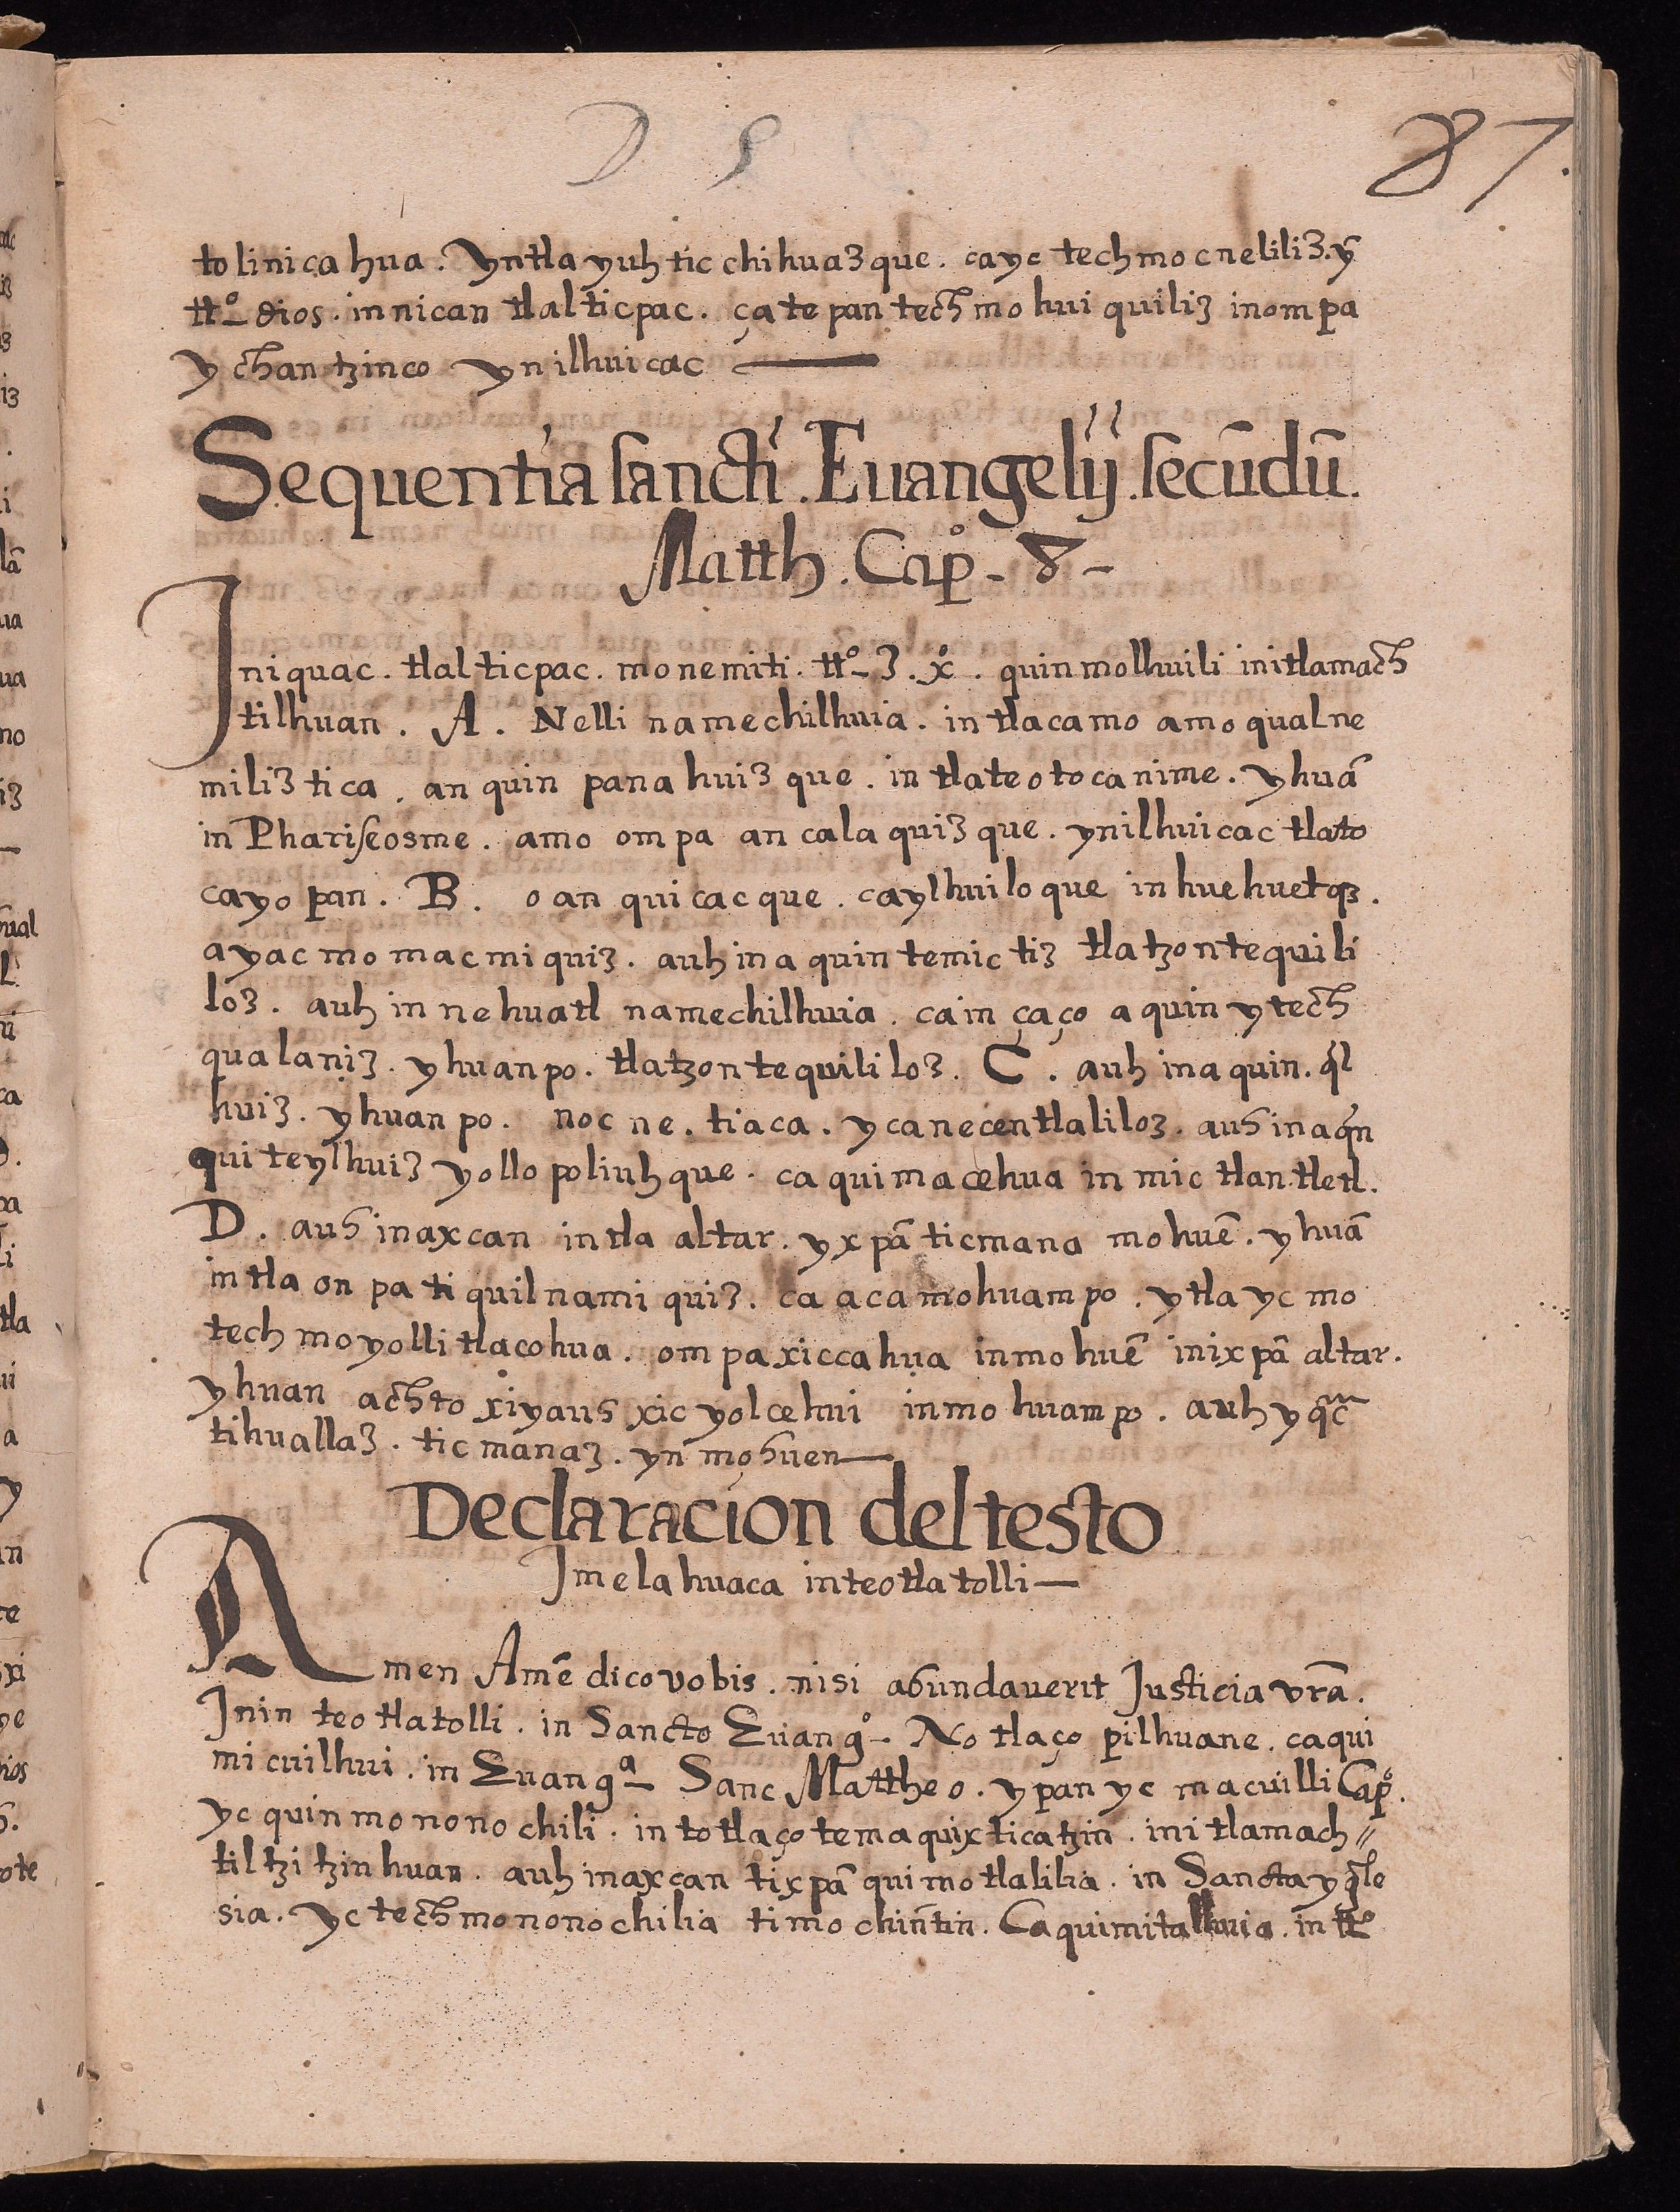 D S
87.
tolinicahua. Yntla yuh tic chihuazque. ca yc techmocneliliz. ỹ
tto_ dios. in nican tlalticpac. çatepan techmohuiquiliz inompa
ychantzinco ynilhuicac
Sequentia sancti. Euangelij. secūdū.
Matth. Capº - 8 -
Iniquac. tlalticpac. monemiti. ttº_ J. xº. quinmolhuili initlamach
tilhuan. A. Nelli namechilhuia. intlacamo amo qualne
miliztica. anquin panahuizque. in tlateotocanime. yhuā
in Phariseosme. amo ompa ancalaquizque. ynilhuicac tlato
cayopan. B. oanquicacque. caylhuiloque in huehuetq̄.
ayac momacmiquiz. auh in aquin temictiz tlatzontequili
loz. auh in nehuatl namechilhuia. cain çaço aquin ytech
qualaniz. yhuanpo. tlatzontequililoz. C. auh inaquin. q̇l
huiz. yhuanpo. nocne. tiaca. yca necentlaliloz. auh inaq̇n
quiteylhuiz yollopoliuhque. ca quimacehua in mictlan tletl.
D. auh inaxcan intla altar. yxpā ticmana mohuē. yhuā
intla onpa tiquilnamiquiz. ca aca mohuampo. ytla yc mo
tech moyollitlacohua. ompa xiccahua inmohuē inixpā altar.
yhuan achto xiyauh xicyolcehui inmohuampo. auh yq̄c
tihuallaz. ticmanaz. yn mohuen
Declaracion del testo
Imelahuaca inteotlatolli
Amen Amē dico vobis. nisi abundauerit Justicia vrā.
Inin teotlatolli. in Sancto Euangº_. No tlaço pilhuane. caqui
micuilhui. in Euangª_ Sanc Mattheo. ypan yc macuilli Capº.
yc quinmononochili. in totlaçotemaquixticatzin. initlamach//
tiltzitzinhuan. auh inaxcan tixpā quimotlalilia. in Sancta yq̄le
sia. yc techmononochilia timochintin. Ca quimitalhuia. in ttº